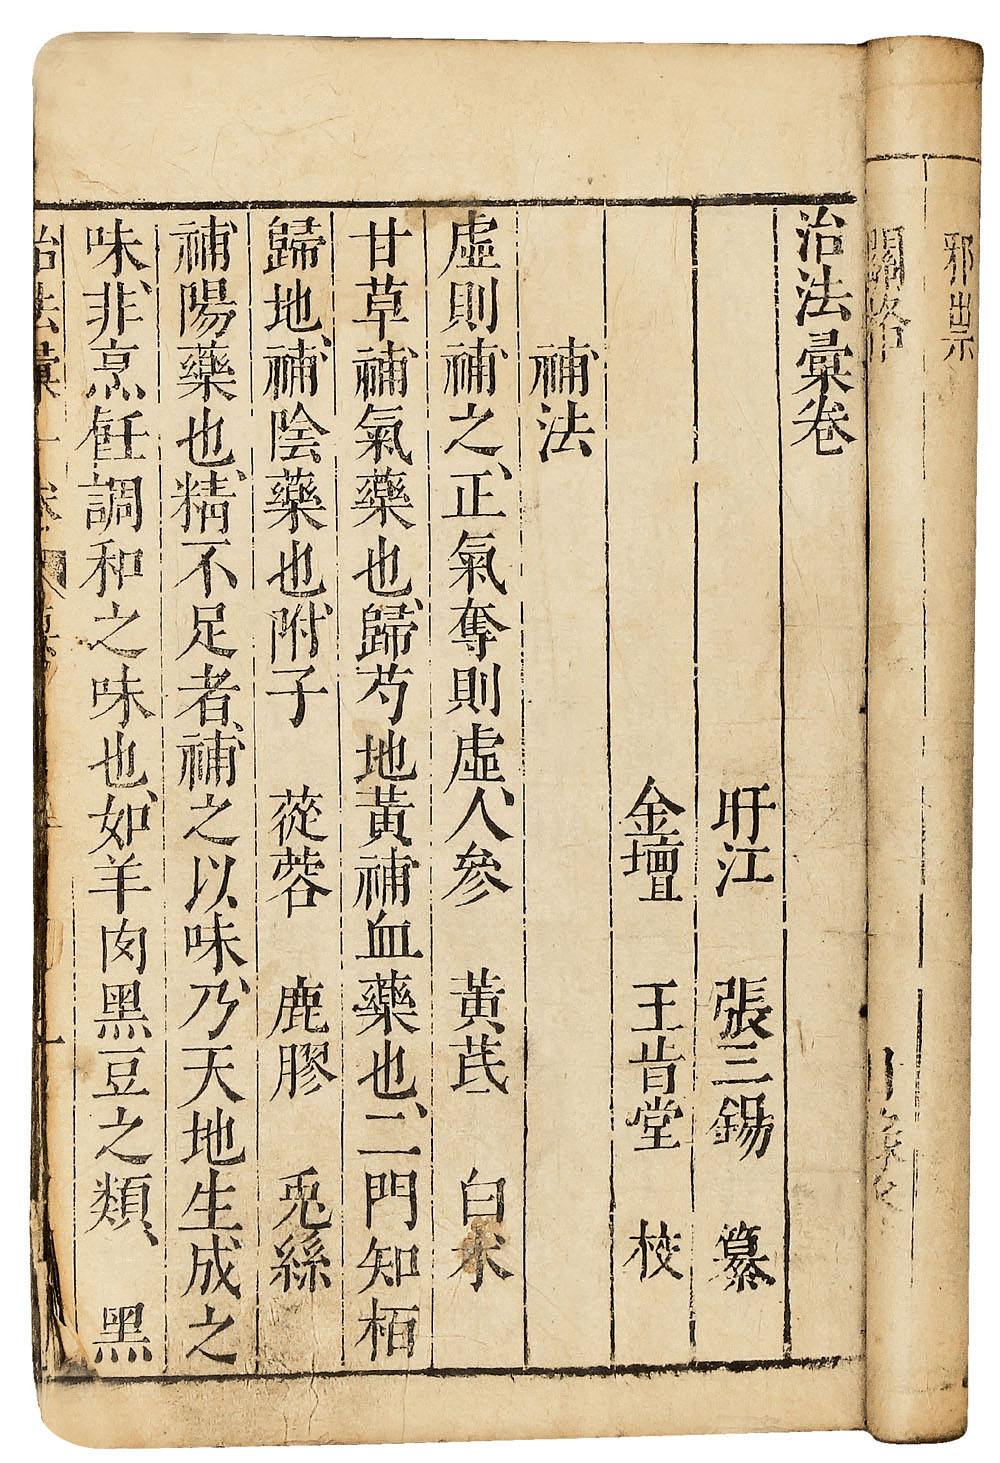 邪祟
關格
治法彙卷
盱江 張三錫 纂
金壇 王肯堂 校
補法
虛則補之、正氣奪則虛、人參 黃芪 白朮
甘草補氣藥也、歸芍地黃補血藥也、二門知栢
歸地、補陰藥也、附子 蓯蓉 鹿膠 兎絲
補陽藥也、精不足者、補之以味、乃天地生成之
味、非烹飪調和之味也、如羊肉黑豆之類、 黑
治法彙